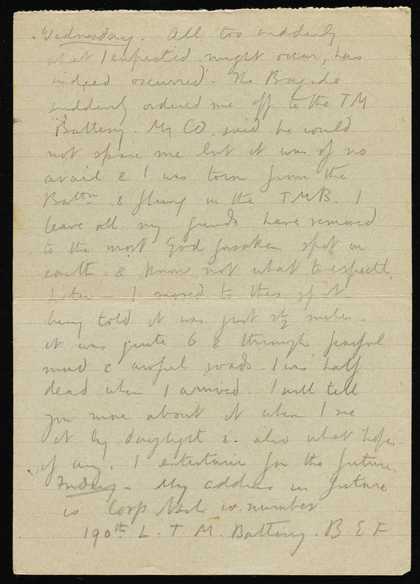 Wednesday. All too suddenly
what I expected might occur, has
indeed occurred. The Brigade
suddenly ordered me off to the TM
Battery. My CO. said he would
not spare me but it was of no
avail & I was torn from the
Battn & flung in the T.M.B. I
leave all my friends have removed
to the most God forsaken spot on
earth & know not what to expect.
I moved to this spot
being told it was just 2½ miles.
it was quite 6 & through fearful
mud & awful roads. I was half
dead when I arrived. I will tell
you more about it when I see
it by daylight & also what hopes
if any, I entertain for the future.
My address in future
is Corp number
190th L. T. M. Battery. B E F